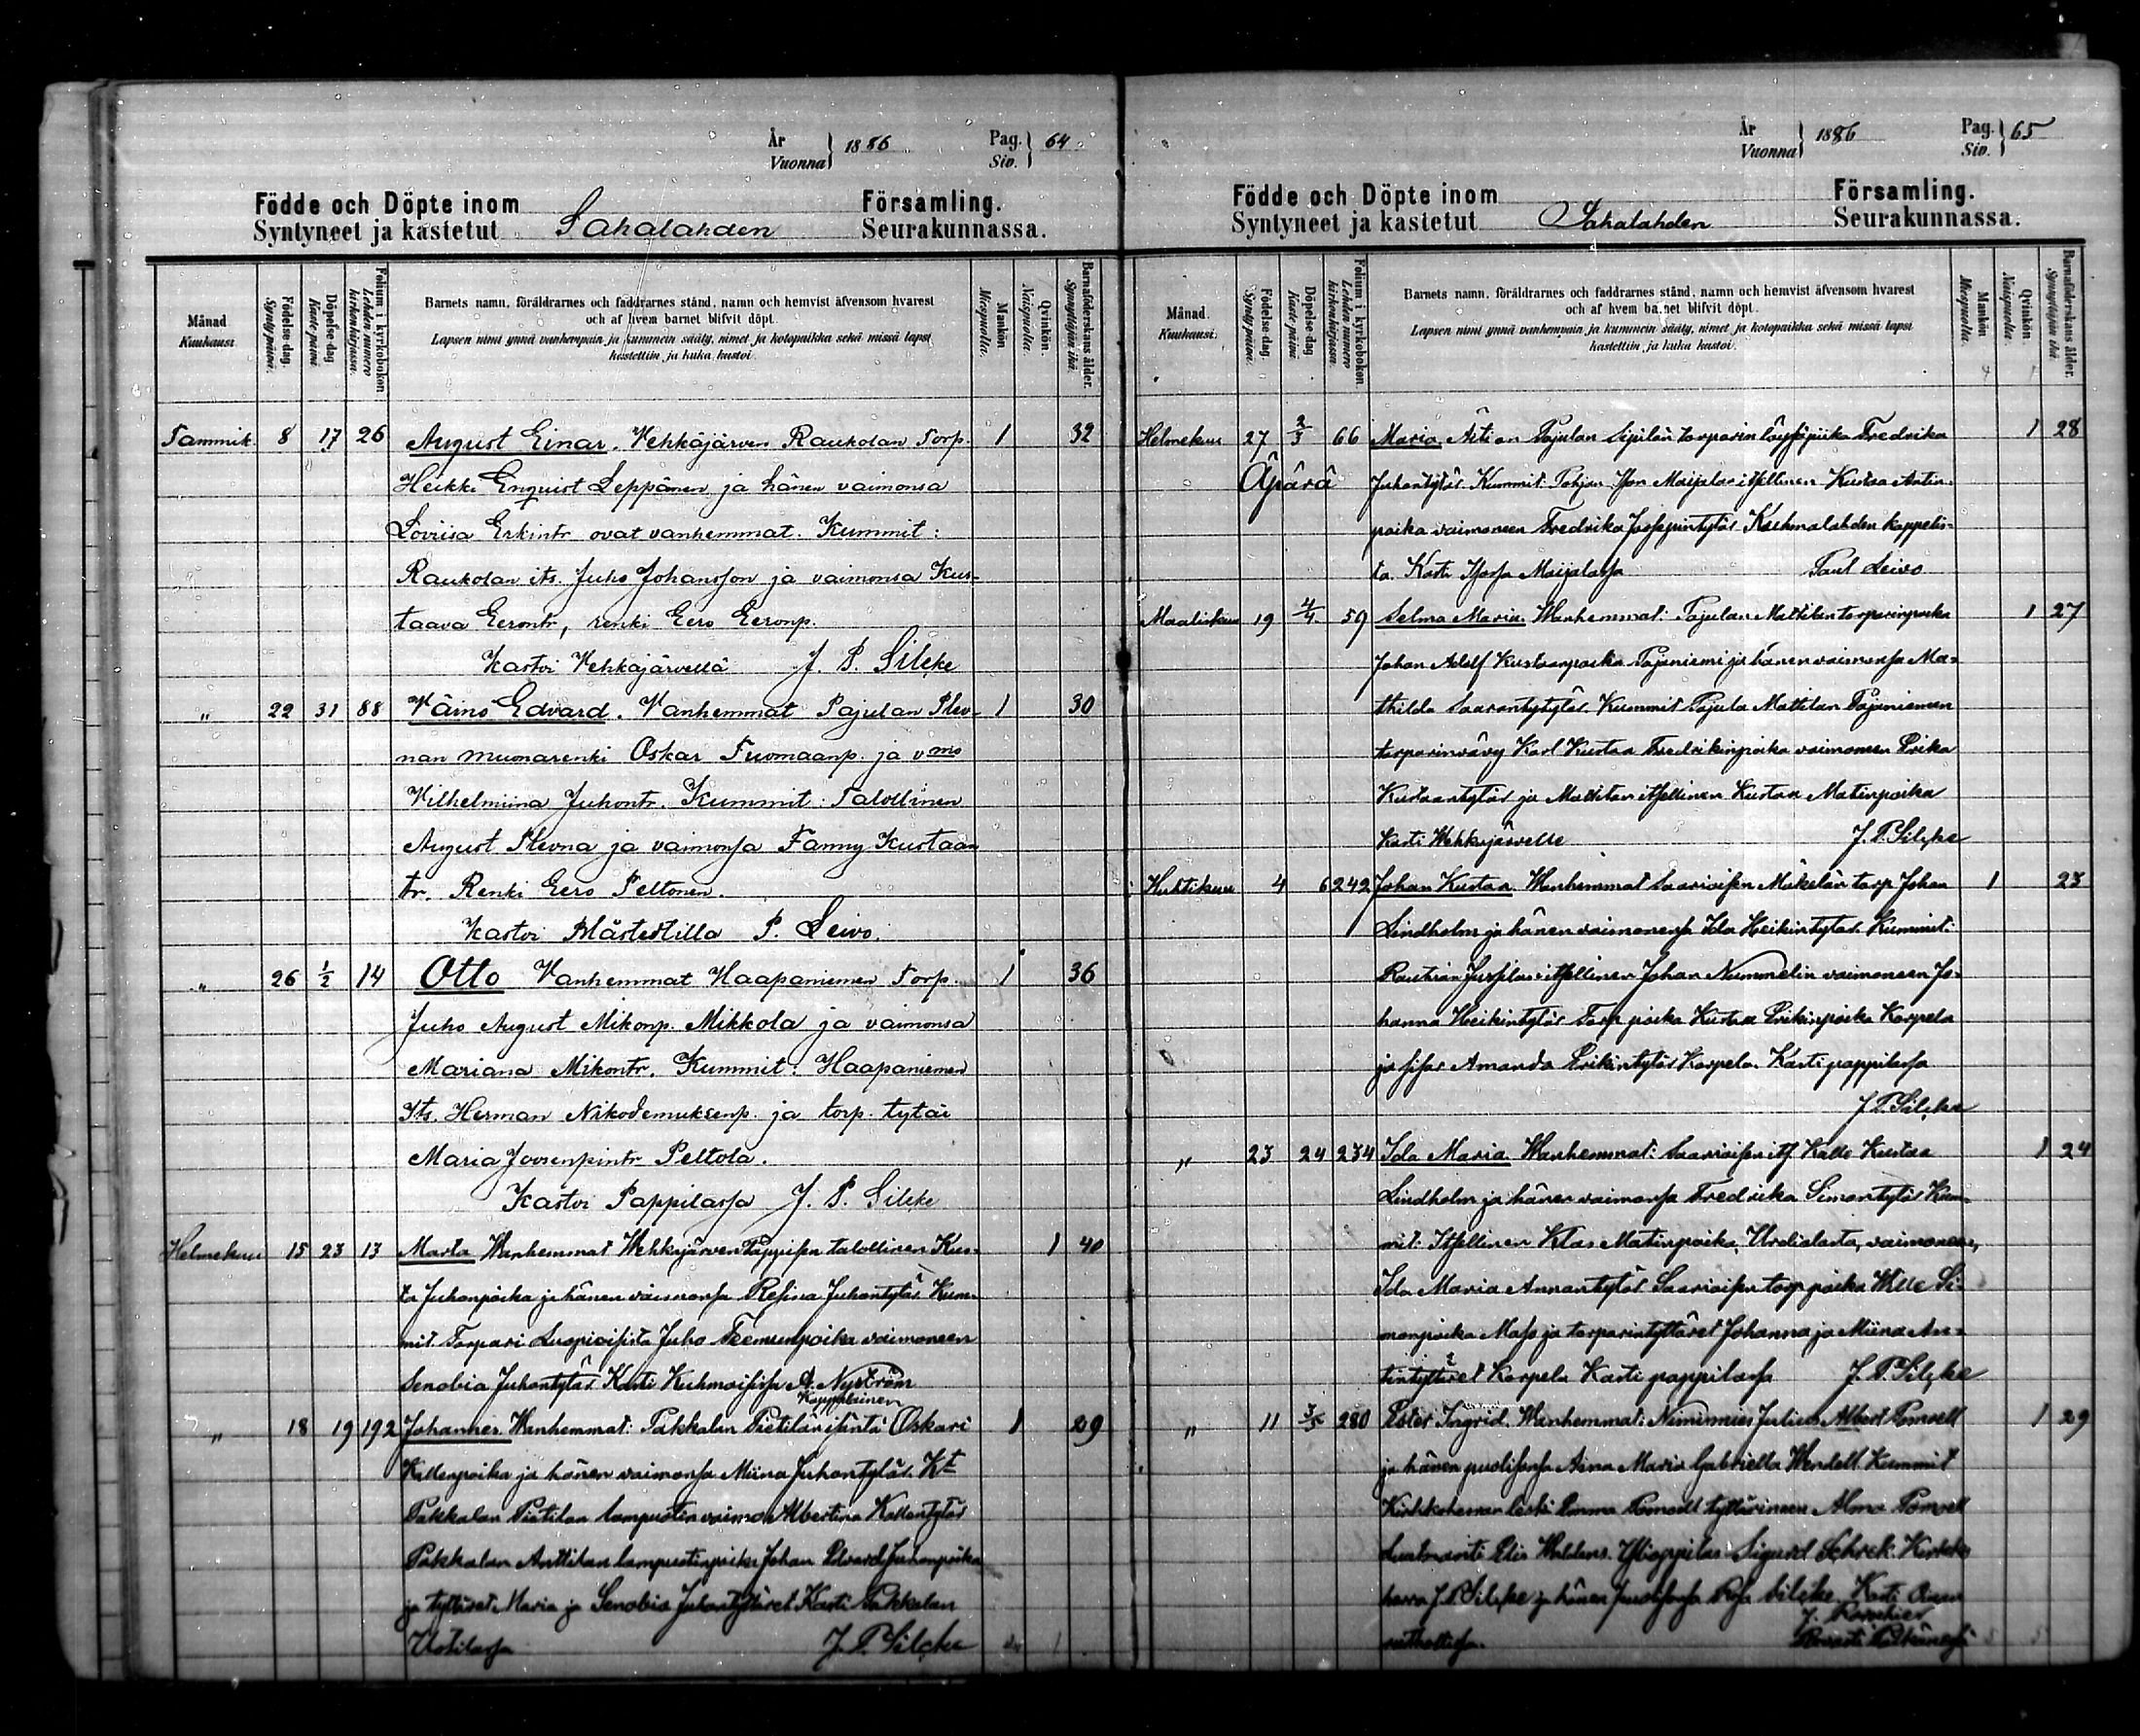 År Vuonna } 1886 Pag. Siv. } 64
Födde och Döpte inom Församling.
Syntyneet ja kastetut Sahalahden Seurakunnassa.
Månad Kuukausi.
Födelse dag. Synty päivä.
Döpelse dag. Kaste päivä.
Folium i kyrkobokon. Lehden numero kirkonkirjassa.
Barnets namn, föräldrarnes och faddrarnes stånd, namn och hemvist äfvensom hvarest
och af hvem barnet blifvit döpt.
Lapsen nimi ynnä vanhempain ja kummein sääty, nimet ja kotopaikka sekä missä lapsi
kastettiin ja kuka kastoi.
Mankön Miespuolia.
Qvinkön. Naispuolia.
Barnaföderskans ålder. Synnyttäjän ikä.
Tammik. 8 17 26 August Einar. Vehkäjärven Raukolan Torp. 1 32
Heikki Enquist Leppänen ja hänen vaimonsa
Loviisa Erkintr. ovat vanhemmat. Kummit:
Raukolan its. Juho Johansson ja vaimonsa Kus-
taava Eerontr, renki Eero Eeronp.
Kastoi Vehkäjärvellä J. P. Silcke
" 22 31 88 Väinö Edvard. Vanhemmat Pajulan Plev- 1 30
nan muonarenki Oskar Tuomaanp. ja vmo
Vilhelmiina Juhontr. Kummit: Talollinen
August Plevna ja vaimonsa Fanny Kustaan
tr. Renki Eero Peltonen.
Kastoi P. Leivo.
" 26 1/2 14 Otto Vanhemmat Haapaniemen Torp. 1 36
Juho August Mikonp. Mikkola ja vaimonsa
Mariana Mikontr. Kummit: Haapaniemen
Its. Herman Nikodemuksenp. ja torp. tytär
Maria Joosenpintr. Peltola.
Kastoi Pappilassa J. P. Silcke
Helmekuu 15 23 13 Marta Wanhemmat Wehkajärven Pappisen talollinen Kus- 1 40
ta Juhonpoika ja hänen vaimonsa Resina Juhontytär Kum-
mit Torpari Juho Teemunpoika vaimoneen
Senobia Juhontytär Kasti Kuhmoisissa A. Nyström
Kappalainen
" 18 19 192 Johannes Wanhemmat: Pakkalan Pietilän isäntä Oskari 1 29
Kallenpoika ja hänen vaimonsa Miina Juhontytär Kt
Pakkalan Pietilan lampuotin vaimo Albertina Kallentytär
Pakkalan Anttilan lampuotinpoika Johan Edvard Juhonpoika
ja tyttäret Maria ja Senobia Juhontyttäret Kasti Pakkalan
J. P. Silcke
År Vuonna } 1886 Pag. Siv. } 65
Födde och Döpte inom Församling.
Syntyneet ja kastetut Sahalahden Seurakunnassa.
Månad Kuukausi.
Födelse dag. Synty päivä.
Döpelse dag. Kaste päivä.
Folium i kyrkobokon. Lehden numero kirkonkirjassa.
Barnets namn, föräldrarnes och faddrarnes stånd, namn och hemvist äfvensom hvarest
och af hvem barnet blifvit döpt.
Lapsen nimi ynnä vanhempain ja kummein sääty, nimet ja kotopaikka sekä missä lapsi
kastettiin ja kuka kastoi.
Mankön Miespuolia.
Qvinkön. Naispuolia.
Barnaföderskans ålder. Synnyttäjän ikä.
Helmekuu 27 2/3 66 Maria. Äiti on Pajulan Sipilän torparin Fredrika 1 28
Äpärä Juhontytär Kummit Pohjan Ison Maijalan itsellinen Kustaa Antin-
poika vaimoneen Fredrika Joosepintytär Kuhmalahden kappelis-
ta. Kasti Isossa Maijalassa Paul Leivo
Maaliskuu 19 4/4 59 Selma Maria. Wanhemmat: Pajulan Mattilan torparinpoika 1 27
Johan Adolf Kustaanpoika Pajuniemi ja hänen vaimonsa Ma-
thilda Kummit Pajula Mattilan Pajuniemen
torparinvävy Karl Kustaa Fredrikinpoika vaimoneen Erika
Kustaantytär ja Mattilan itsellinen Kustaa Matinpoika
Kasti Wehkajärvelle J. P. Silcke
Huhtikuu 4 6 242 Johan Kustaa. Wanhemmat Saarioisten Mäkelän torp Johan 1 23
Lindholm ja hänen vaimonensa Ida Heikintytär. Kummit:
Rautian itsellinen Johan Nummelin vaimoneen Jo-
hanna Heikintytär Torp poika Kustaa Erikinpoika Korpela
ja sisar Amanda Erikintytär Korpela. Kasti pappilassa
J. P. Silcke
" 23 24 234 Ida Maria. Wanhemmat: Saarioisten its Kalle Kustaa 1 24
Lindholm ja hänen vaimonsa Fredrika Simontytär Kum-
mit: Itsellinen Klas Matinpoika, Urdialasta, vaimoneen,
Ida Maria Annantytär Saarioisten torp poika Wille Si-
monpoika ja torparintyttäret Johanna ja Miina An-
tintyttäret Korpela Kasti pappilassa J. P. Silcke
" 11 3/5 280 Ester Ingrid. Wanhemmat: Nimismies Julius Albert Pomoell 1 29
ja hänen puolisonsa Aina Maria Gabriella Wendell Kummit
Kirkkoherran leski Emma Pomoell tyttärineen Alma Pomoell
Elis Yliopilas Sigurd Schrek Kirkko
herra J. P. Silcke ja hänen puolisonsa Rosa Silcke. Kasti
J. Roschier
Rovasti Pälkäneessä